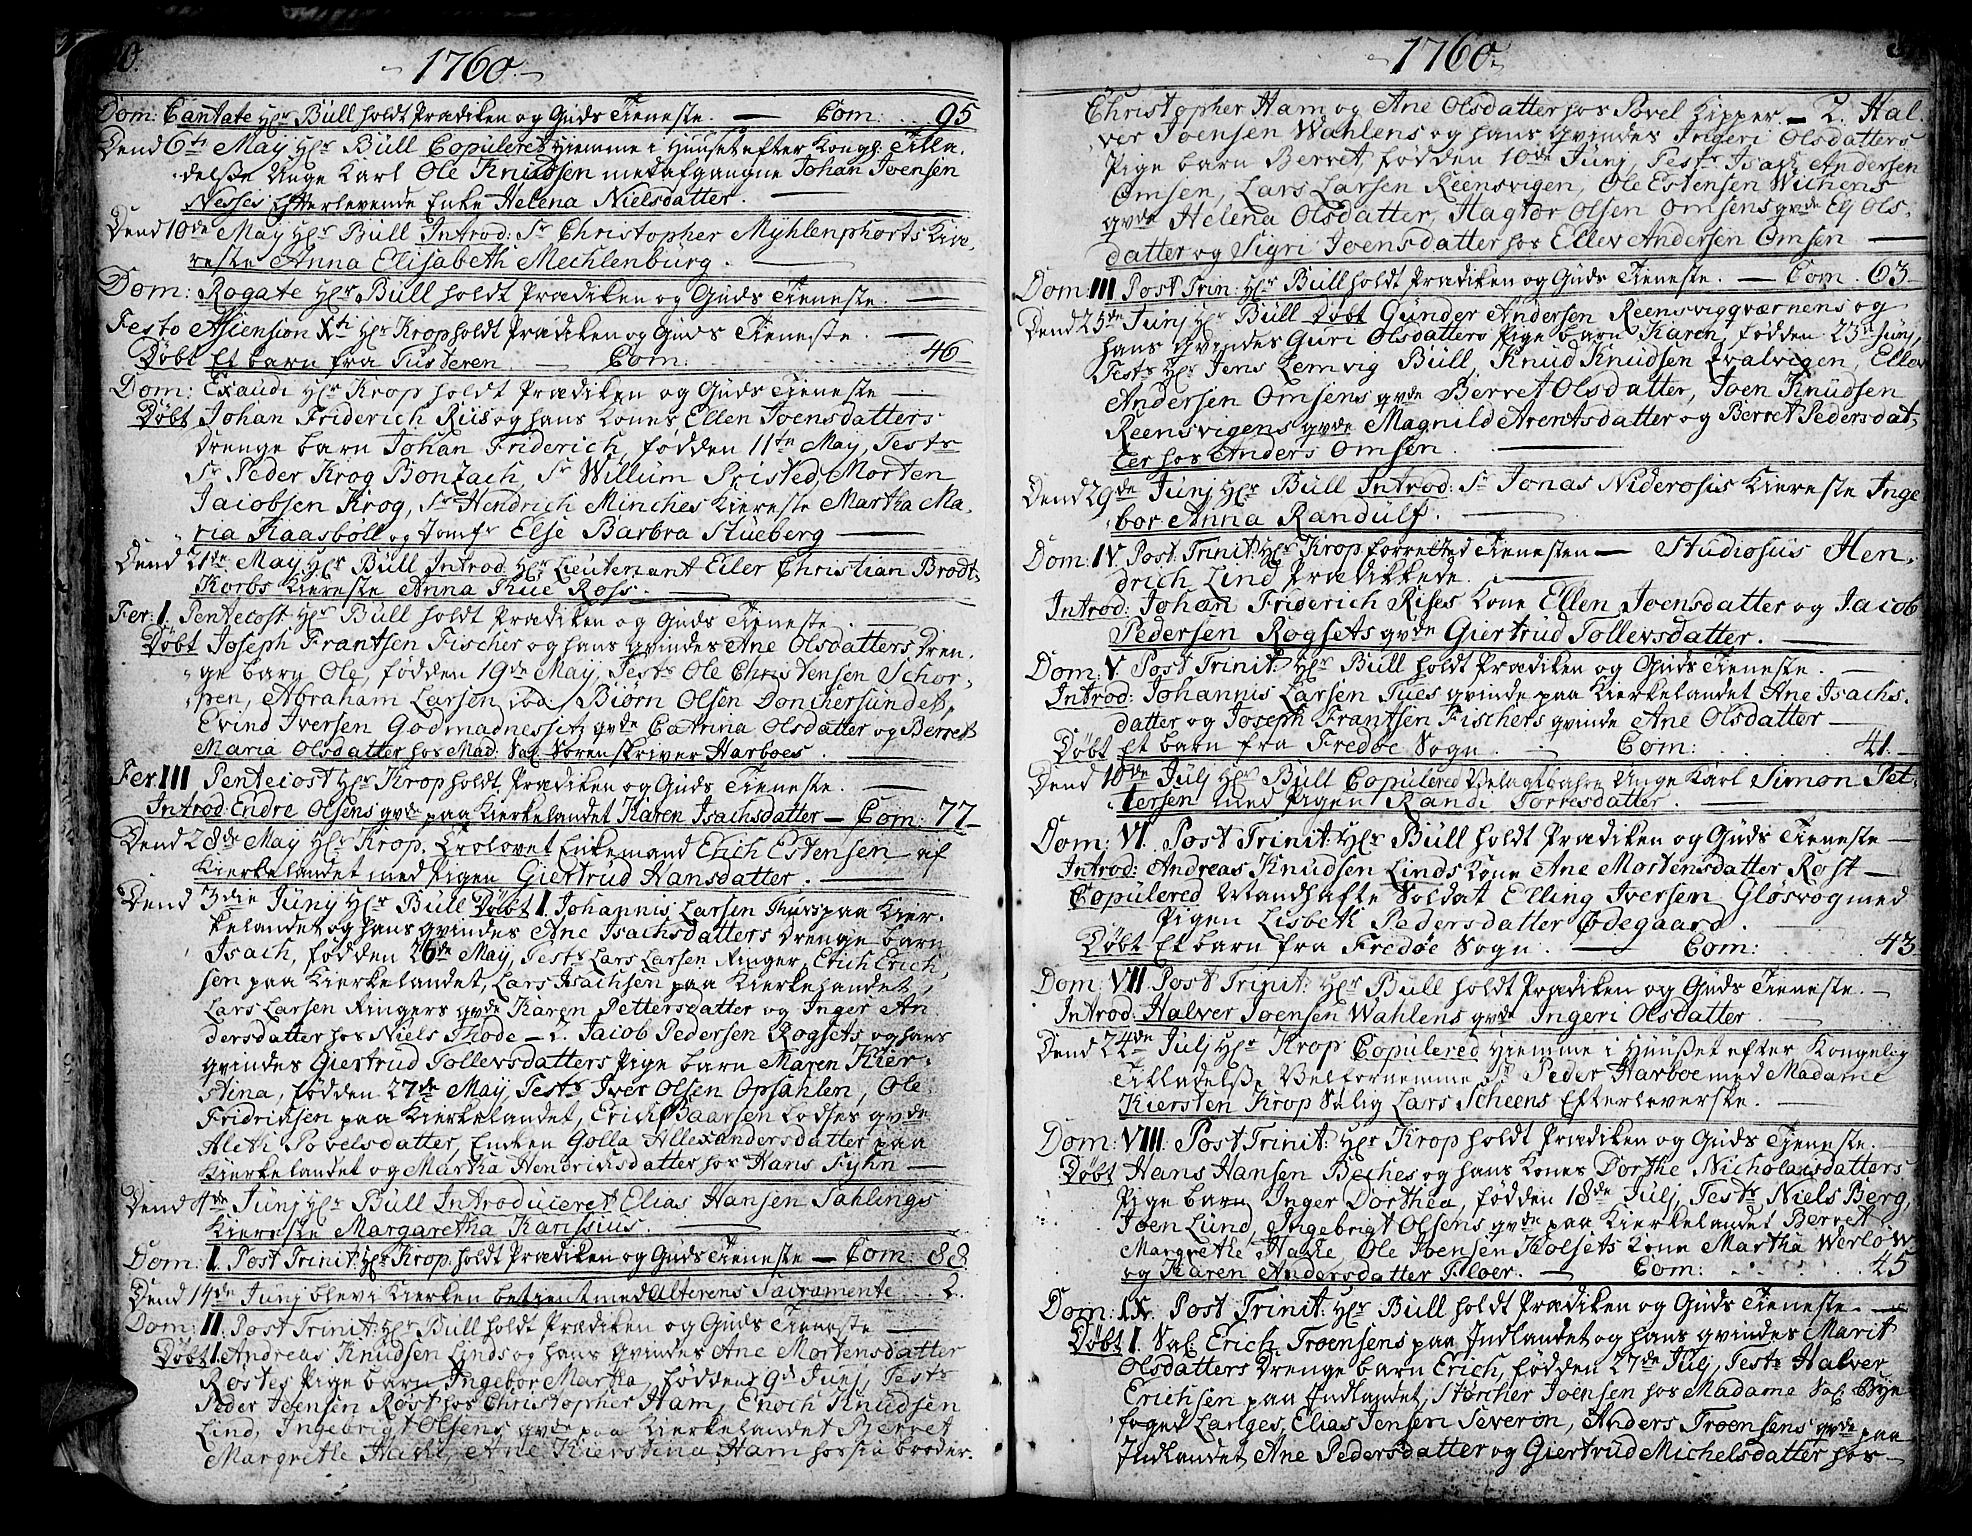 0.
1760.
Dom: Cantate Hr. Büll holdt Prædiken og Guds Tieneste. — Com: 95
Dend 6te May Hr. Büll Copuleret Hiemme i Huuset efter Kongl. Tilla-
delse Unge Karl Ole Knudsen med afgangne Johan Joensen
Nesses Efterlevende Enke Helena Nielsdatter. —
Dend 10de May Hr. Büll Introd: Sr Christopher Myhlenphorts Kie-
reste Anna Elisabeth Mechlenburg. —
Dom: Rogate Hr. Büll holdt Prædiken og Guds Tieneste. —
Festo Assension Xti Hr. Krop holdt Prædiken og Guds Tieneste. —
Døbt Et barn fra Tusderen. — Com: 46
Dom: Exaudi Hr. Krop holdt Prædiken og Guds Tieneste —
Døbt Johan Friderich Riis og hans Kones Ellen Joensdatters
Drenge barn Johan Friderich, fødden 11te May, Test:
Sr. Peder Krog Bonzach, Sr. Willum Pristed, Morten
Jacobsen Krog, Sr. Hendrich Minches Kiereste Martha Ma-
ria Kaasbøll og Jomfr. Else Barbra Stueberg —
Dend 21de May Hr. Büll Introd. Hr. Lieutenant Eiler Christian Brodt-
Korbs Kiereste Anna Kue Ross. —
Fer: I. Pentecost Hr. Büll holdt Prædiken og Guds Tieneste. —
Døbt Joseph Frantsen Fischer og hans Qvindes Ane Olsdatters Dren-
ge barn Ole, fødden 19de May, Test: Ole Christensen Schor-
pen, Abraham Larsen Bjørn Olsen Donchersundet,
Evind Iversen Godmadnessitz qvde Catrina Olsdatter og Berret
Maria Olsdatter hos Mad: Sal. Sorenskriver Harboes. —
Fer III Pentecost Hr. Krop holdt Prædiken og Guds Tieneste. —
Introd: Endre Olsens qvde paa Kierkelandet Karen Isachsdatter — Com: 77
Dend 28de May Hr. Krop. Trolovet Enkemand Erich Estensen af
Kierkelandet med Pigen Giertrud Hansdatter. —
Dend 3die Junj Hr. Büll Døbt I. Johannis Larsen Thuss paa Kier-
kelandet og hans qvindes Ane Isachsdatters Drenge barn
Isach, fødden 26de May, Test: Lars Larsen Ringer, Erich Erich-
sen paa Kierkelandet, Lars Isachsen paa Kierkelandet,
Lars Larsen Ringers qvde Karen Pettersdatter og Inger An-
dersdatter hos Niels Thode — 2. Jacob Pedersen Rogsets og hans
qvindes Giertrud Tollevsdatters Pige barn Maren Kier-
stina, fødden 27de May, Test: Iver Olsen Opsahlen, Ole
Fridrichsen paa Kierkelandet, Erich Baarsen Lodses qvde
Aleth Povelsdatter, Enken Golla Allexandersdatter paa
Kierkelandet og Martha Hendrichsdatter hos Hans Fyhn —
Dend 4de Junj Hr. Büll Introduceret Elias Hansen Sahlings
Kiereste Margaretha Karissius. —
Dom: I. Post Trinit: Hr. Krop. holdt Prædiken og Guds Tieneste — Com: 88.
Dend 14de Junj blev i Kierken betient med Alterens Sacramente 2.
Dom: II. Post Trinit: Hr. Büll holdt Prædiken og Guds Tieneste —
Døbt I. Andreas Knudsen Linds og hans Qvindes Ane Mortensdatter
Rostes Pige barn Ingebor Martha, fødden 9de Junj, Test:
Peder Joensen Røst hos Christopher Ham, Enoch Knudsen
Lind, Ingebrigt Olsens qvde paa Kierkelandet Berret
Margrethe Hake, Ane Kierstina Ham hos sin broder.
1760.
Christopher Ham og Ane Olsdatter hos Povel Kipper. — 2. Hal-
ver Joensen Wahlens og hans Qvindes Ingeri Olsdatters
Pige barn Berret, fødden 10de Junj, Test: Isach Andersen
Omsen, Lars Larsen Reensvigen, Ole Estensen Wichens
qvde Helena Olsdatter, Hagtor Olsen Omsens qvde Elj Ols-
datter og Sigri Joensdatter hos Ellev Andersen Omsen —
Dom: III Post Trin: Hr. Büll holdt Prædiken og Guds Tieneste. — Com. 63.
Dend 25de Junj Hr. Büll Døbt Gunder Andersen Reensvigqværnens og
hans Qvindes Guri Olsdatters Pige barn Karen, fødden 23de Junj,
Test: Hr. Jens Lemvig Büll, Knud Knudsen Qvalvigen, Ellev
Andersen Omsens qvde Berret Olsdatter, Joen Knudsen
Reensvigens qvde Magnild Arentsdatter og Berret Pedersdat-
ter hos Anders Omsen. —
Dend 29de Junj Hr. Büll Introd: Sr. Jonas Niderosis Kiereste Inge-
bor Anna Randulf. —
Dom: IV. Post. Trinit: Hr. Krop forretted Tienesten — Studiosus Hen-
drich Lind Prædikkede. —
Introd: Johan Friderich Rises Kone Ellen Joensdatter og Jacob
Pedersen Rogsets qvde Giertrud Tollevsdatter. —
Dom: V. Post Trinit: Hr. Büll holdt Prædiken og Guds Tieneste. —
Introd: Johannis Larsen Tues qvinde paa Kierkelandet Ane Isachs-
datter og Joseph Frantsen Fischers qvinde Ane Olsdatter —
Døbt Et barn fra Fredøe Sogn. — Com: 41. —
Dend 10de Julj Hr. Büll Copulered Velagtbahre Unge Karl Simon Pet-
tersen med Pigen Randi Torresdatter. —
Dom: VI. Post Trinit: Hr. Büll holdt Prædiken og Guds Tieneste —
Introd: Andreas Knudsen Linds Kone Ane Mortensdatter Rost —
Copulered Mandhafte Soldat Elling Iversen Gløsvog med
Pigen Lisbeth Pedersdatter Ødegaard. —
Døbt Et barn fra Fredøe Sogn. — Com: 43.
Dom: VII Post Trinit: Hr. Büll holdt Prædiken og Guds Tieneste. —
Introd: Halver Joensen Wahlens qvde Ingeri Olsdatter. —
Dend 24de Julj Hr. Krop Copulered Hiemme i Huuset efter Kongelig
Tilladelse Velfornemme Sr. Peder Harboe med Madame
Kiersten Krop Salig Lars Scheens Efterleverske. —
Dom: VIII. Post Trinit: Hr. Krop holdt Prædiken og Guds Tieneste.
Døbt Hans Hansen Beches og hans Kones Dorthe Nicholaisdatters
Pige barn Inger Dorthea, fødden 18de Julj, Test: Niels Berg,
Joen Lund, Ingebrigt Olsens qvde paa Kierkelandet Berret
Margrethe Hake, Ole Joensen Holsets Kone Martha Werløw
og Karen Andersdatter Floer. — Com: 45
Dom: IX. Post Trinit: Hr. Büll holdt Prædiken og Guds Tieneste. —
Døbt I. Sal. Erich Troensens paa Indlandet og hans qvindes Marit
Olsdatters Drenge barn Erich, fødden 27de Julj, Test: Halver
Erichsen paa Indlandet, Storcher Joensen hos Madame Sal. Bye-
foget Langes, Elias Jensen Severøn, Anders Troensens qvde paa
Indlandet Ane Pedersdatter og Giertrud Michelsdatter hos —